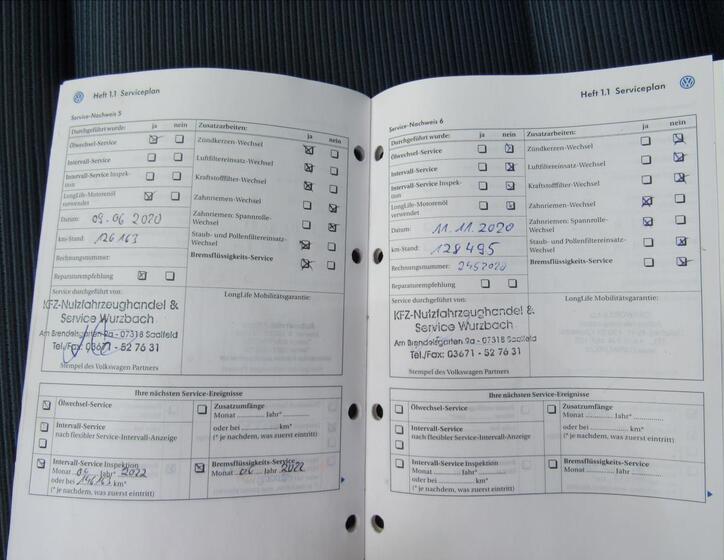 Heft 1.1 Serviceplan
Service-Nachweis 5
Durchgeführt wurde: ja nein
Ölwechsel-Service
Intervall-Service
Intervall-Service Inspek-
tion
LongLife-Motorenöl
verwendet
Datum: 09.06 2020
km-Stand: 126163
Rechnungsnummer:
Reparaturempfehlung
Zusatzarbeiten: ja nein
Zündkerzen-Wechsel
Luftfiltereinsatz-Wechsel
Kraftstofffilter-Wechsel
Zahnriemen-Wechsel
Zahnriemen: Spannrolle-
Wechsel
Staub- und Pollenfiltereinsatz-
Wechsel
Bremsflüssigkeits-Service
Service durchgeführt von:
KFZ-Nutzfahrzeughandel &
Service Wurzbach
Am Brendelsgarten 9a - 07318 Saalfeld
Tel./Fax: 03671 - 52 76 31
Stempel des Volkswagen Partners
LongLife Mobilitätsgarantie:
Ihre nächsten Service-Ereignisse
Ölwechsel-Service
Intervall-Service
nach flexibler Service-Intervall-Anzeige
Intervall-Service Inspektion
Monat 06 Jahr* 2022
oder bei 146163 km*
(* je nachdem, was zuerst eintritt)
Zusatzumfänge
Monat Jahr*
oder bei km*
(* je nachdem, was zuerst eintritt)
Bremsflüssigkeits-Service
Monat 06 Jahr 2022
Heft 1.1 Serviceplan
Service-Nachweis 6
Durchgeführt wurde: ja nein
Ölwechsel-Service
Intervall-Service
Intervall-Service Inspek-
tion
LongLife-Motorenöl
verwendet
Datum: 11.11.2020
km-Stand: 128495
Rechnungsnummer: 2452020
Reparaturempfehlung
Zusatzarbeiten: ja nein
Zündkerzen-Wechsel
Luftfiltereinsatz-Wechsel
Kraftstofffilter-Wechsel
Zahnriemen-Wechsel
Zahnriemen: Spannrolle-
Wechsel
Staub- und Pollenfiltereinsatz-
Wechsel
Bremsflüssigkeits-Service
Service durchgeführt von:
KFZ-Nutzfahrzeughandel &
Service Wurzbach
Am Brendelsgarten 9a - 07318 Saalfeld
Tel./Fax: 03671 - 52 76 31
Stempel des Volkswagen Partners
LongLife Mobilitätsgarantie:
Ihre nächsten Service-Ereignisse
Ölwechsel-Service
Intervall-Service
nach flexibler Service-Intervall-Anzeige
Intervall-Service Inspektion
Monat Jahr*
oder bei km*
(* je nachdem, was zuerst eintritt)
Zusatzumfänge
Monat Jahr*
oder bei km*
(* je nachdem, was zuerst eintritt)
Bremsflüssigkeits-Service
Monat Jahr